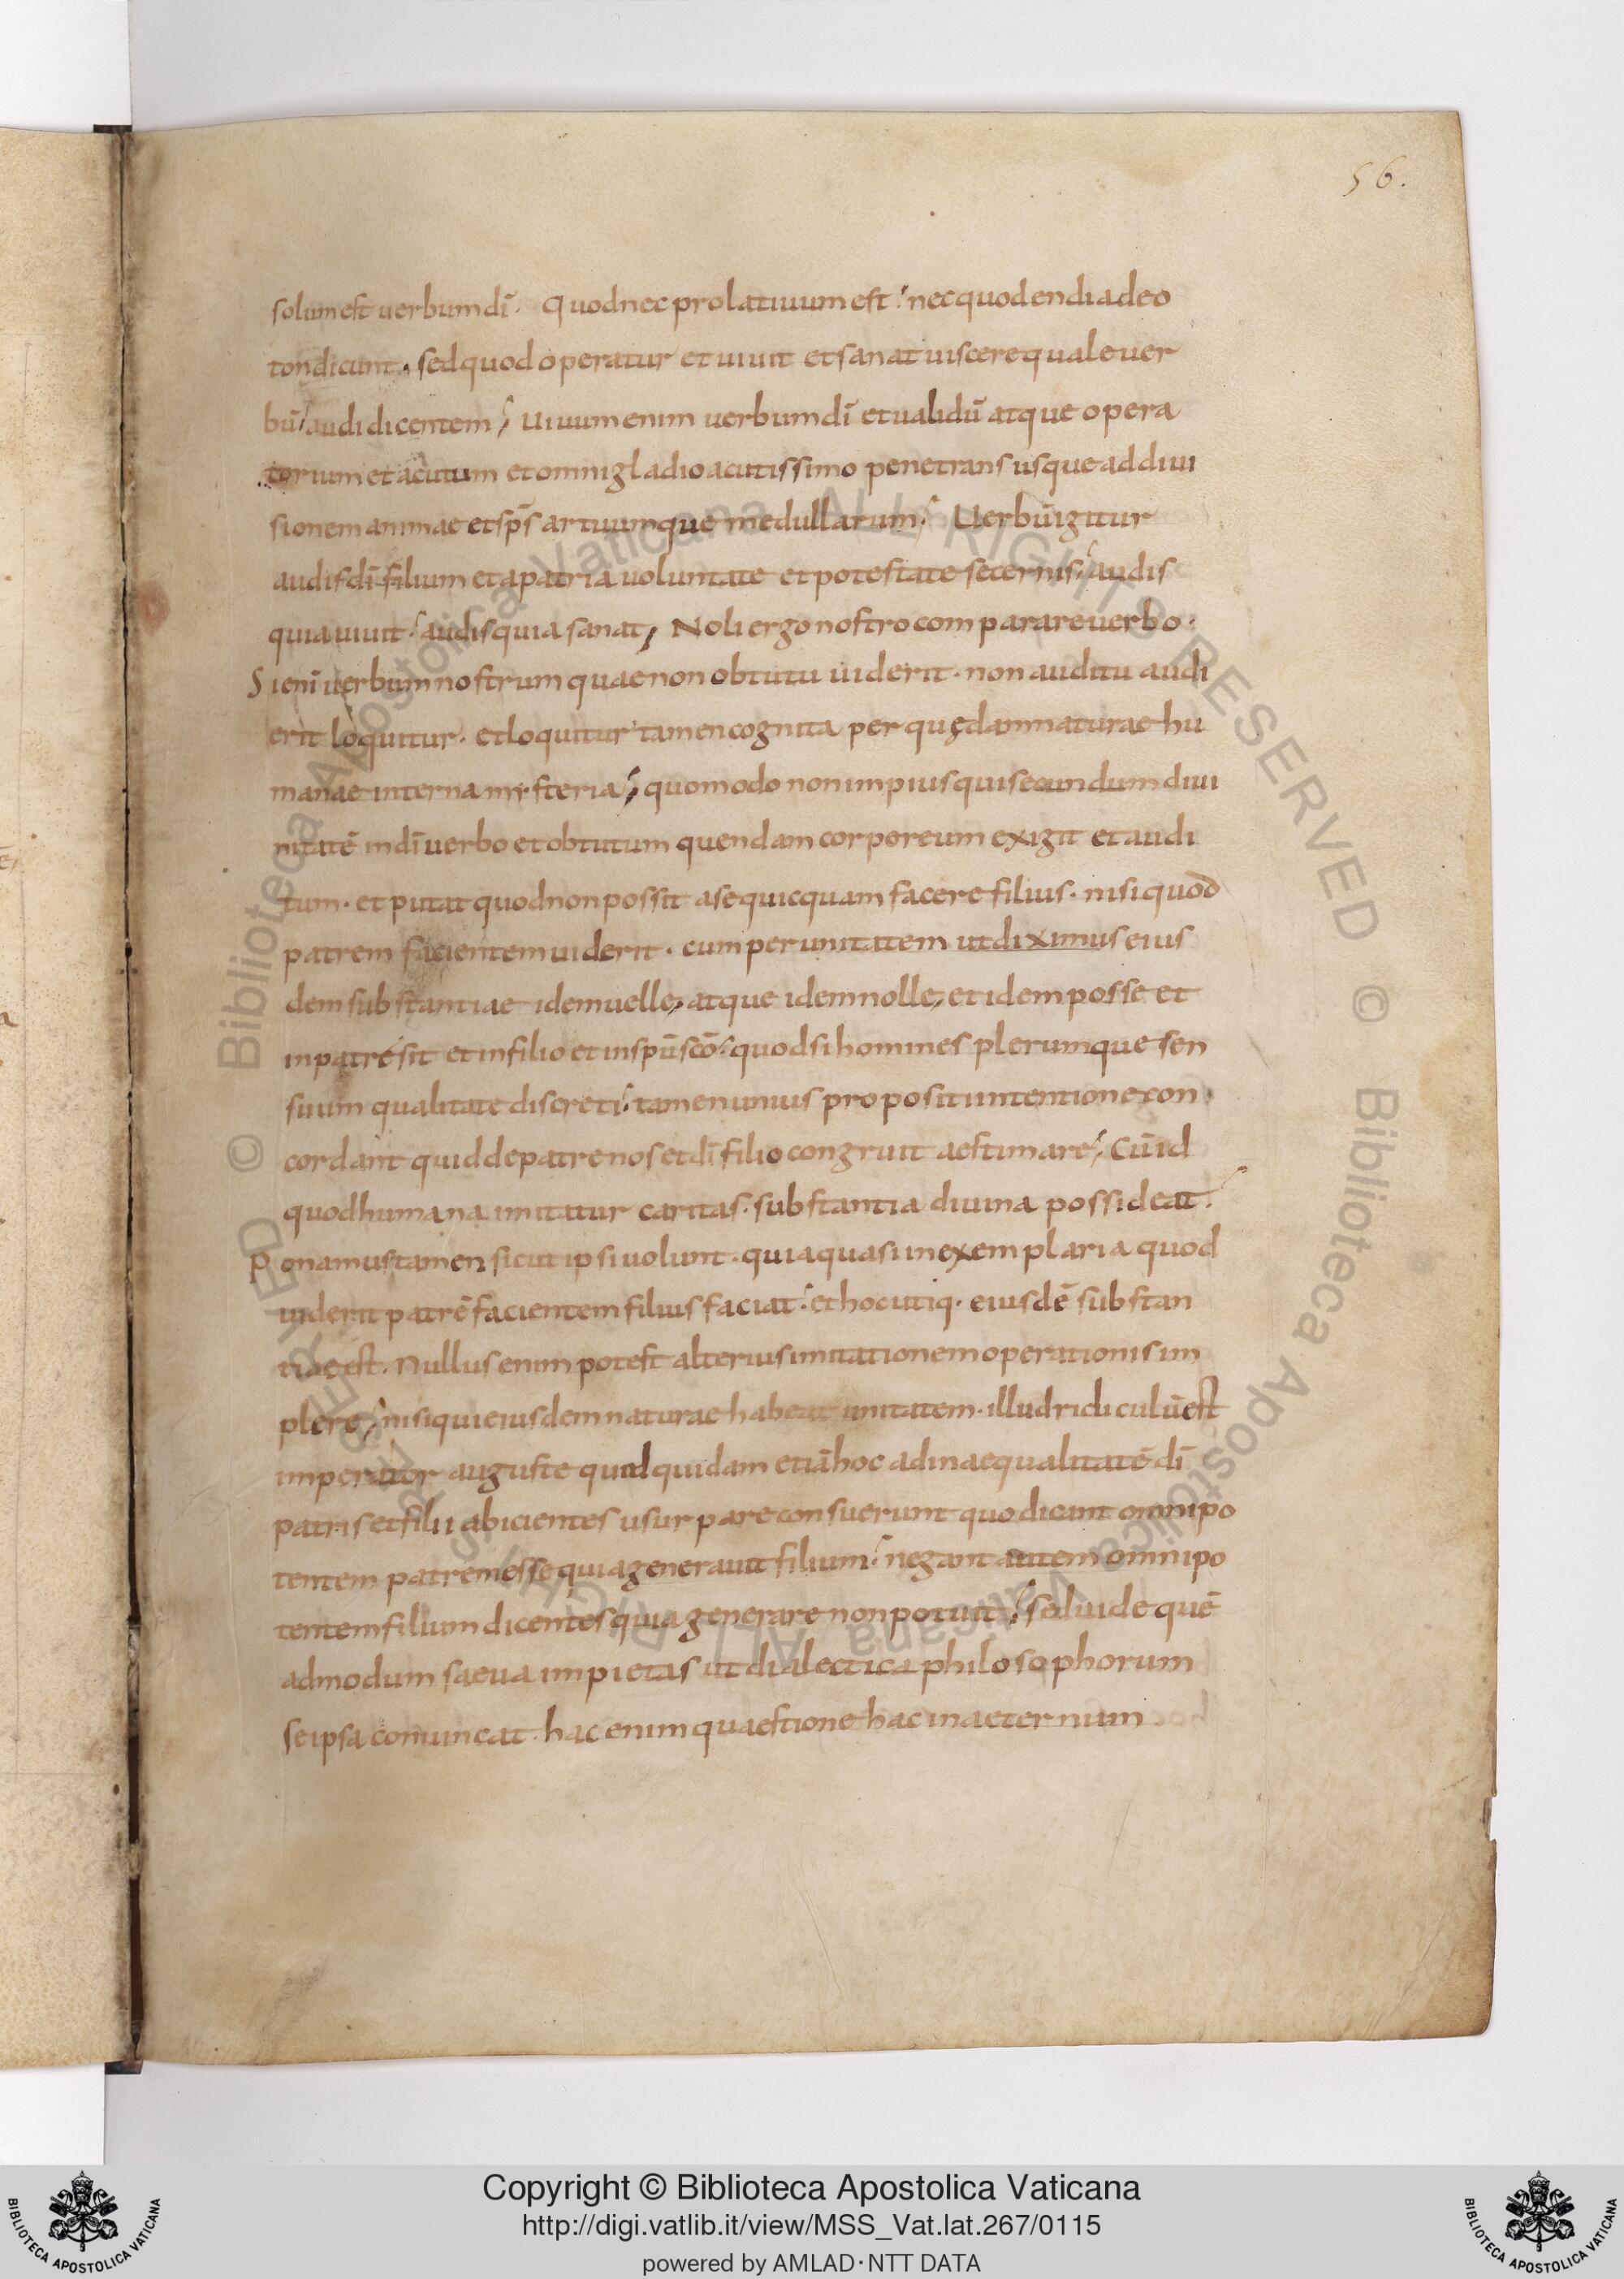 56.
solum est uerbum dī. Quod nec prolatiuum est. nec quod endiadeo
ton dicunt. sed quod operatur et uiuit et sanat uis cere quale uer
bū audi dicentem; Uiuum enim uerbum dī et ualidū atque opera
torium et acutum et omni gladio acutissimo penetrans usque ad diui
sionem animae et sp̄s artuumque medullarum. Uerbū igitur
audis dī filium et a patria uoluntate et potestate secernis. audis
quia uiuit. audis quia sanat; Noli ergo nostro comparare uerbo.
Si enī uerbum nostrum quae non obtutu uiderit. non auditu audi
erit loquitur. et loquitur tamen cognita per quędam naturae hu
manae interna mysteria; quomodo non impius qui secundum diui
nitatē in dī uerbo et obtutum quendam corporeum exigit et audi
tum. et putat quod non possit a se quicquam facere filius. nisi quod
patrem facientem uiderit. cum per unitatem ut diximus eius
dem substantiae idem uelle, atque idem nolle, et idem posse et
in patre sit et in filio et in spū scō. quod si homines plerumque sen
suum qualitate discreti. tamen unius propositi intentione con
cordant quid de patre nos et dī filio congruit aestimare; Cū id
quod humana imitatur caritas. substantia diuina possideat.
Ponamus tamen sicut ipsi uolunt. quia quasi in exemplaria quod
uiderit patrē facientem filius faciat. et hoc utiq. eiusdē substan
tiae est. Nullus enim potest alterius imitationem operationis im
plere, nisi qui eiusdem naturae habeat unitatem. illud ridiculū est
imperator auguste quod quidam etiā hoc ad inaequalitatē dī
patris et filii abicientes usurpare consuerunt quo dicunt omnipo
tentem patrem esse quia generauit filium. negant autem omnipo
tentem filium dicentes quia generare non potuit; sed uide quē
admodum saeua impietas ut dialectica philosophorum
se ipsa conuincat. hac enim quaestione hac in aeternum
© Biblioteca Apostolica Vaticana ALL RIGHTS RESERVED © Biblioteca Apostolica Vaticana ALL RIGHTS RESERVED
Copyright © Biblioteca Apostolica Vaticana
http://digi.vatlib.it/view/MSS_Vat.lat.267/0115
powered by AMLAD·NTT DATA
BIBLIOTECA APOSTOLICA VATICANA
BIBLIOTECA APOSTOLICA VATICANA